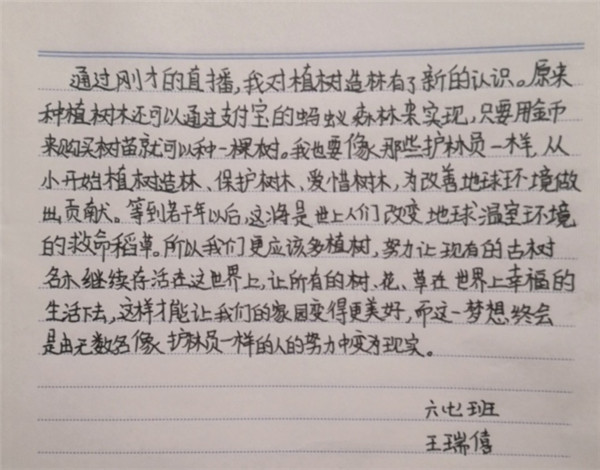 通过刚才的直播,我对植树造林有了新的认识。原来
种植树木还可以通过支付宝的蚂蚁森林来实现,只要用金币
来购买树苗就可以种一棵树。我也要像那些护林员一样,从
小开始植树造林、保护树木、爱惜树木,为改善地球环境做
出贡献。等到若干年以后,这将是世上人们改变地球温室环境
的救命稻草。所以我们更应该多植树,努力让现有的古树
名木继续存活在这世界上,让所有的树、花、草在世界上幸福的
生活下去,这样才能让我们的家园变得更美好,而这一梦想终会
是由无数名像护林员一样的人的努力中变为现实。
六七班
王瑞僖